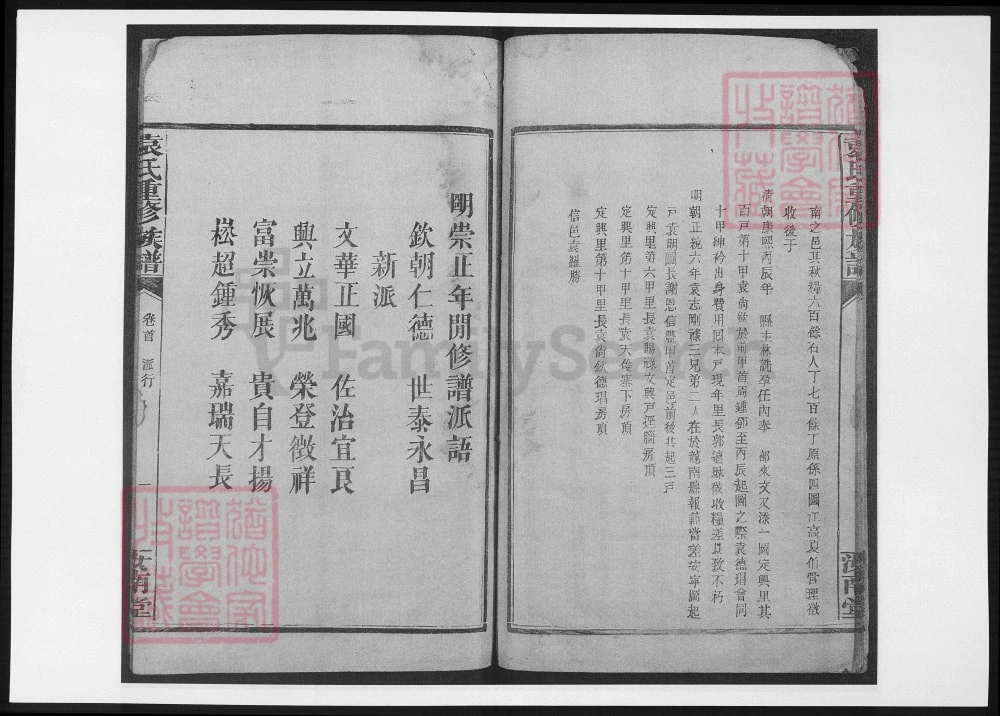 袁氏重修族譜
南之邑其秋糧六百餘石人丁七百餘丁原係四圖江高夏伯當理徵
收後于
清朝康熙丙辰年 縣主林諱 任內奉 部來文又添一圖定興里其
百戸第十甲袁尙欽於前甲首周鍾 至丙辰起圖之際袁德琩會同
十甲紳衿出身費用回本戸現年里長郭 淋徵收糧差具致不朽
明朝正統六年袁志剛祿三兄弟二人在於龍南縣報籍當差安寧圖起
戸袁明圖長謝恩信豐甲首定邑前後共起三戸
定興里第六甲里長袁賜祿文興戸 腦房頂
定興里第十甲里長袁天 寨下房頂
定興里第十甲里長袁尙欽德琩房頂
信邑袁羅勝
汝南堂
明崇正年間修譜派語
欽朝仁德 世泰永昌
新派
文華正國 佐治宜民
興立萬兆 榮登徵祥
富崇恢展 貴自才揚
崧超鍾秀 嘉瑞天長
袁氏重修族譜
卷首 派行
一
汝南堂
FamilySearch
譜學會
收藏
譜學會
收藏